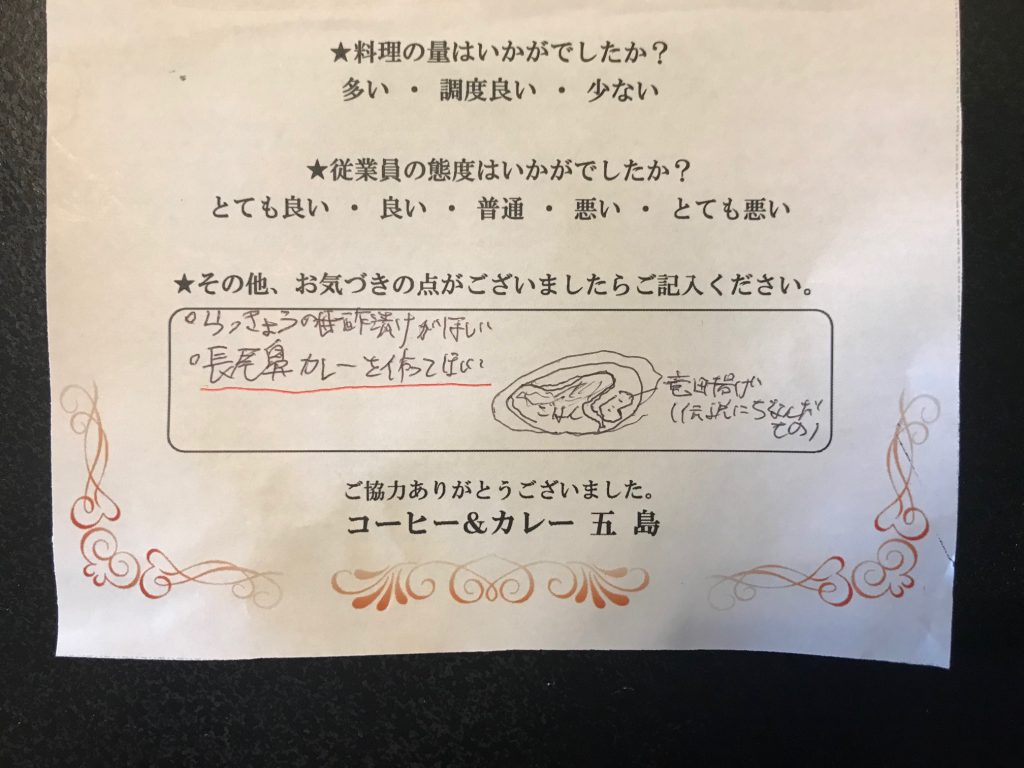 ★料理の量はいかがでしたか？
多い ・ 調度良い ・ 少ない
★従業員の態度はいかがでしたか？
とても良い ・ 良い ・ 普通 ・ 悪い ・ とても悪い
★その他、お気づきの点がございましたらご記入ください。
○らっきょうの甘酢漬けがほしい
○長尾鼻カレーを作ってほしい
ごはん
竜田揚げ
(伝説にちなんだ
もの)
ご協力ありがとうございました。
コーヒー＆カレー 五 島